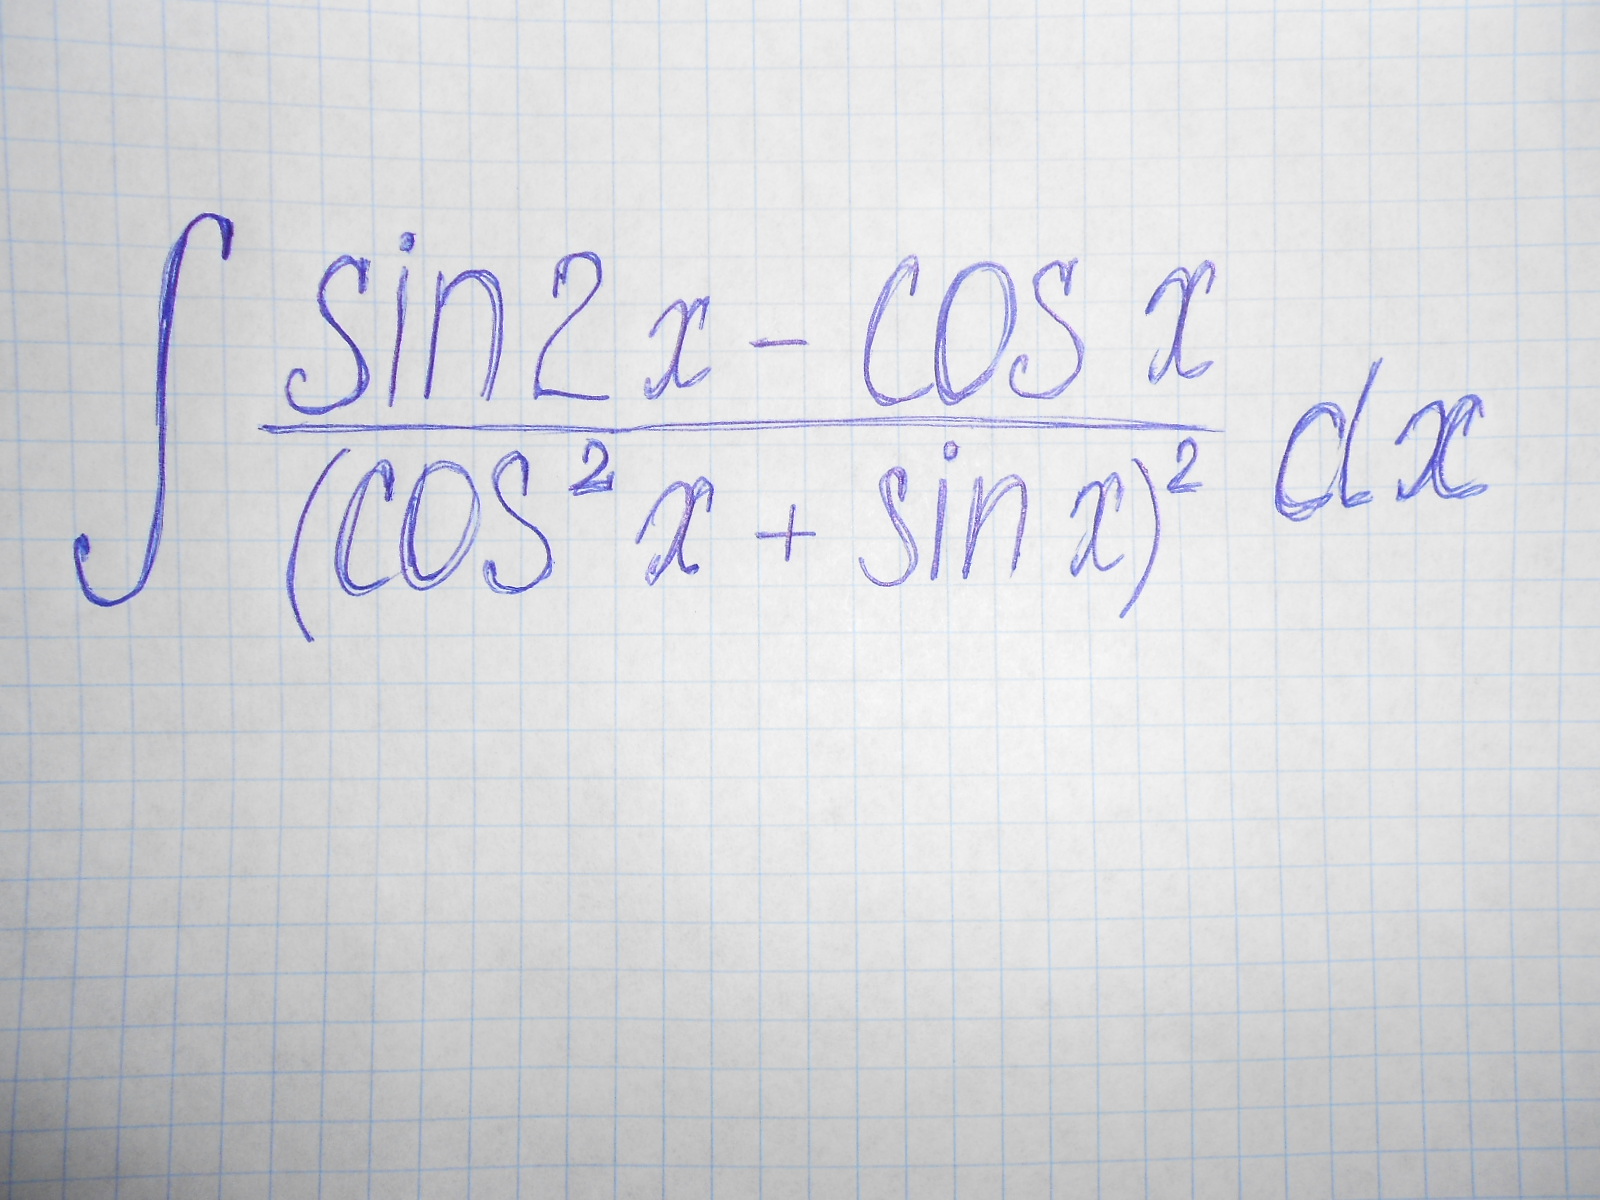 ∫ (sin 2x - cos x) / (cos² x + sin x)² dx